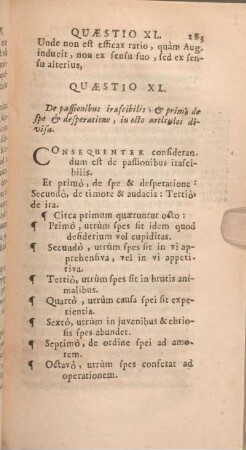 QUÆSTIO XL. 283
Unde non est efficax ratio, quàm Aug.
inducit, non ex sensu suo, sed ex sen-
su alterius,
QUÆSTIO XL.
De passionibus irascibilis: & primò de
spe & desperatione, in octo articulos di-
visa.
CONSEQUENTER consideran-
dum est de passionibus irasci-
bilis.
Et primò, de spe & desperatione:
Secundò, de timore & audacia: Tertiò,
de ira.
¶ Circa primum quæruntur octo:
¶ Primò, utrùm spes sit idem quod
desiderium vel cupiditas.
¶ Secundò, utrùm spes sit in vi ap-
prehensiva, vel in vi appeti-
tiva.
¶ Tertiò, utrùm spes sit in brutis ani-
malibus.
¶ Quartò, utrùm causa spei sit expe-
rientia.
¶ Sextò, utrùm in juvenibus & ebrio-
sis spes abundet.
¶ Septimò, de ordine spei ad amo-
rem.
¶ Octavò, utrùm spes conferat ad
operationem.